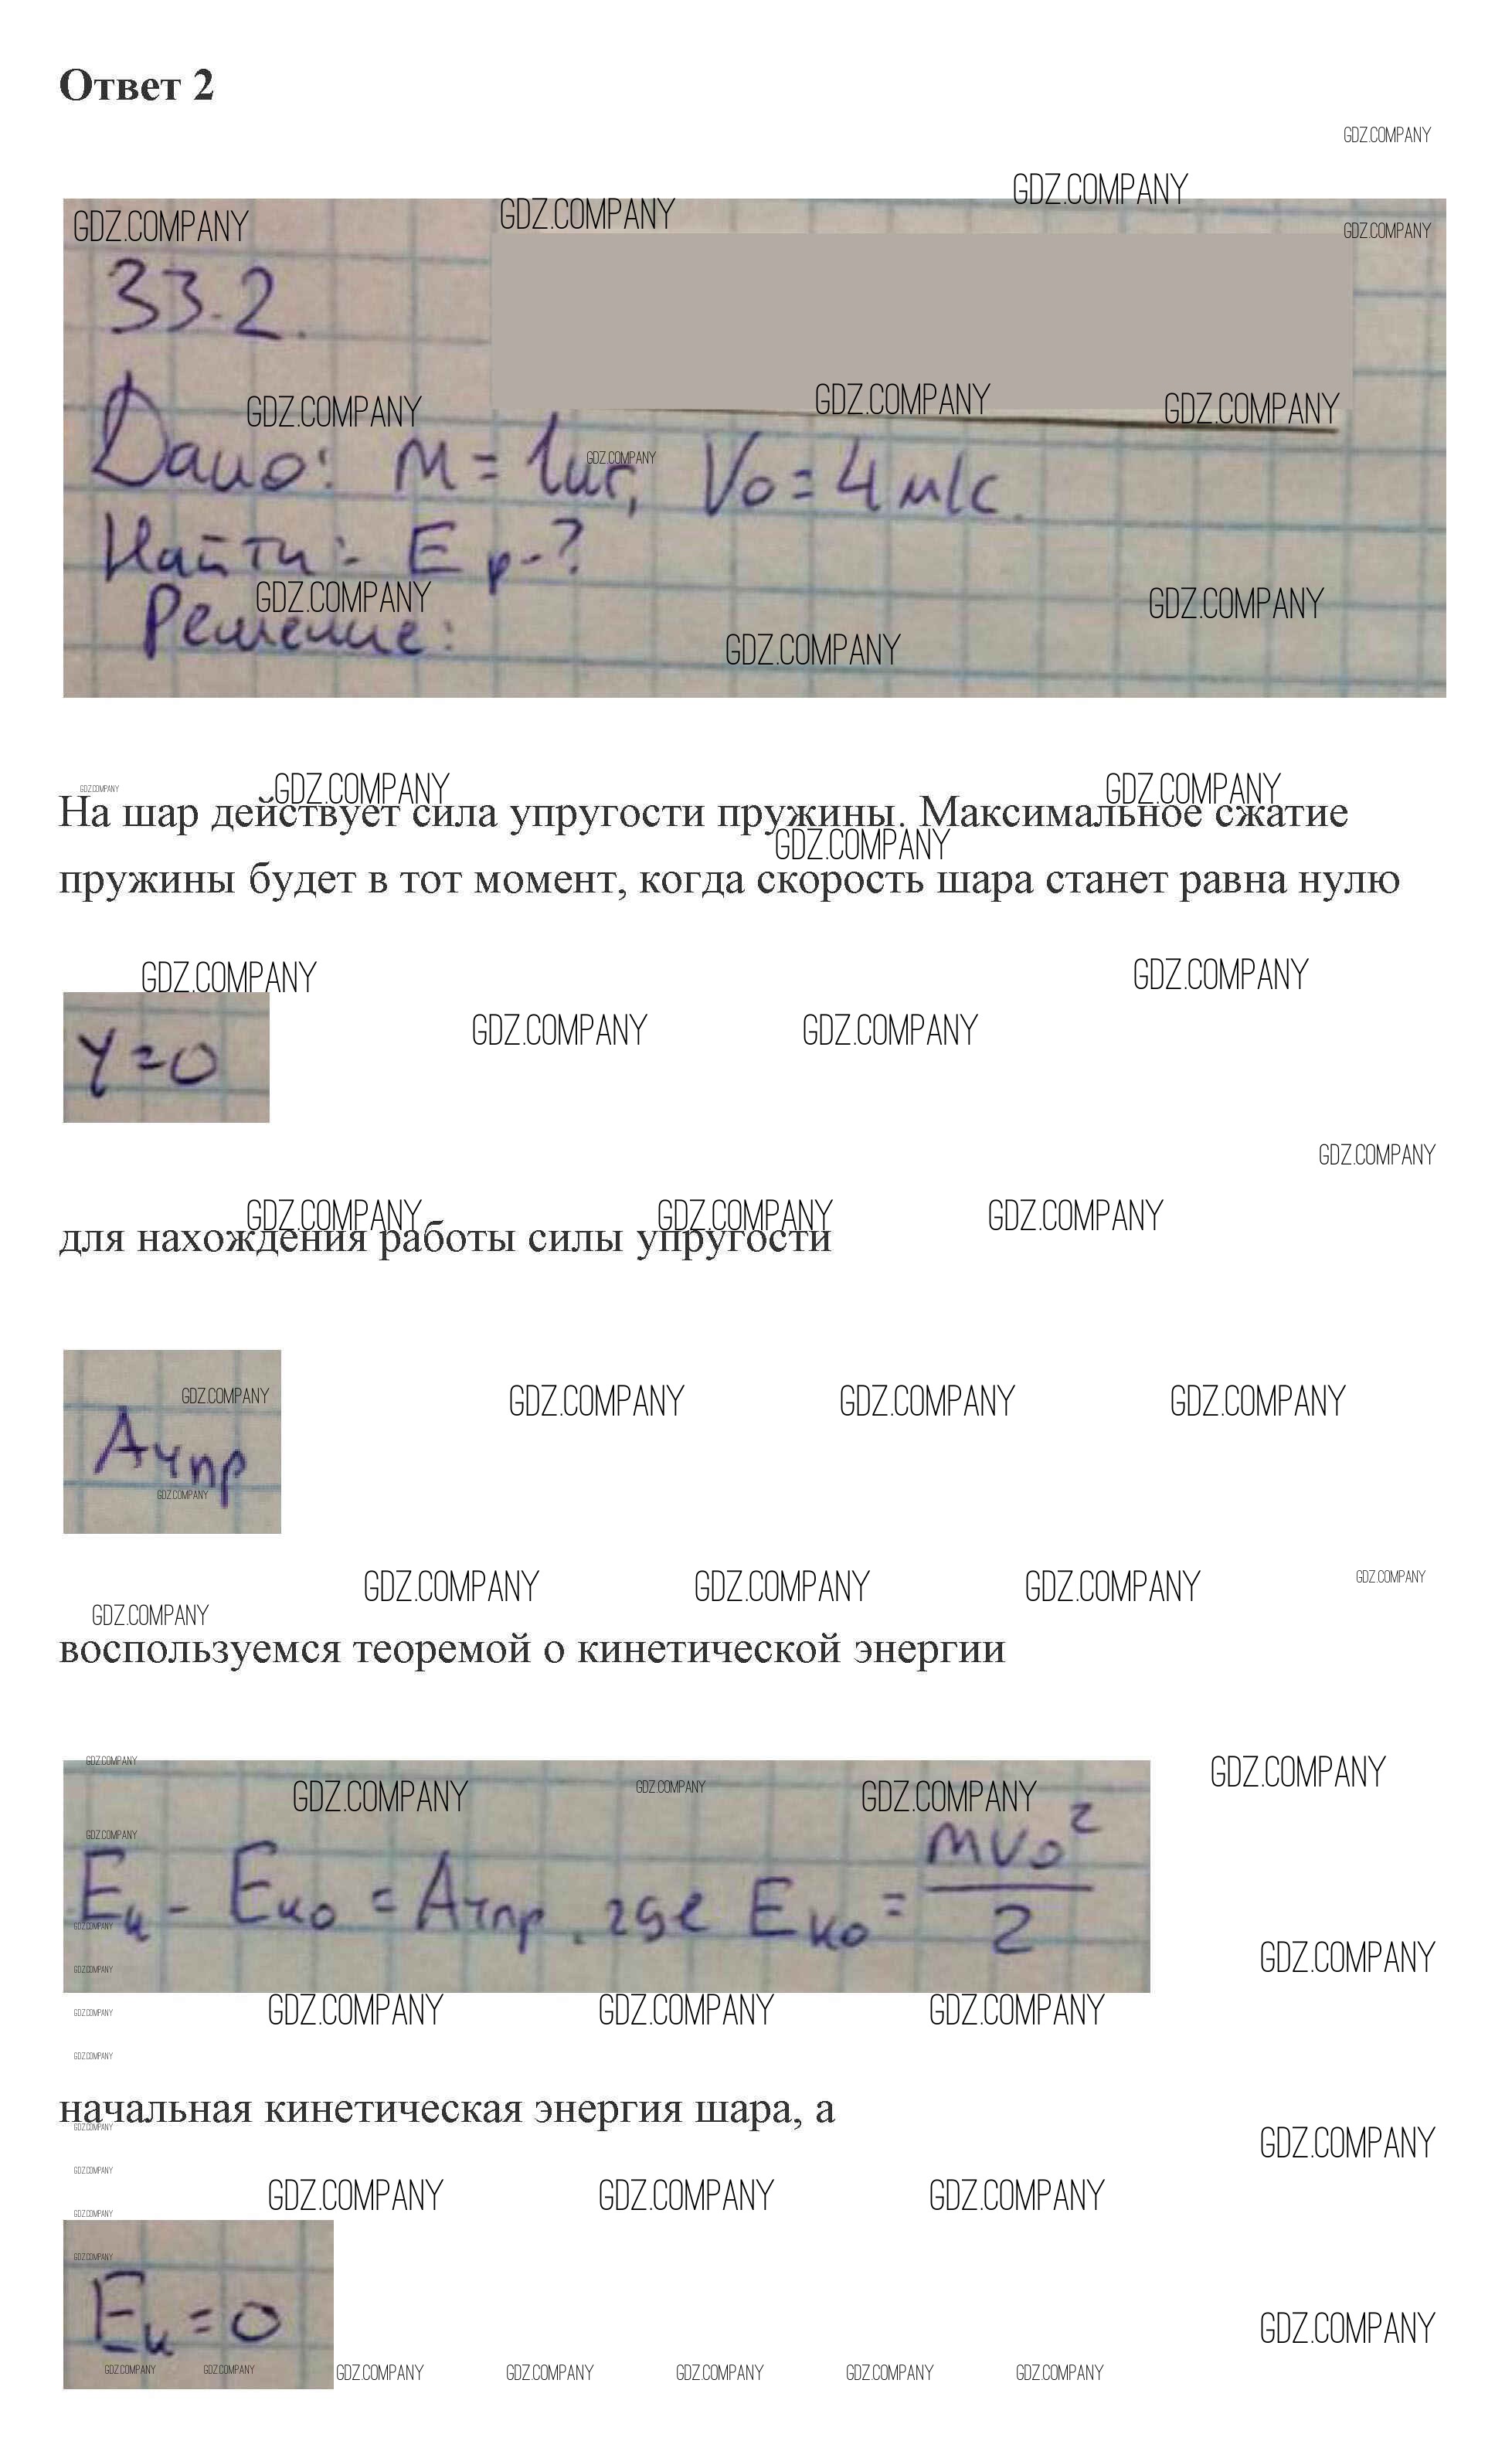 Ответ 2
GDZ.COMPANY
33.2.
Дано: m = 1кг, V0 = 4 м/с.
Найти: E p-?
Решение:
На шар действует сила упругости пружины. Максимальное сжатие
пружины будет в тот момент, когда скорость шара станет равна нулю
γ=0
для нахождения работы силы упругости
Aупр
воспользуемся теоремой о кинетической энергии
Eк - Eк0 = Aупр, где Eк0 = mv0²/2
начальная кинетическая энергия шара, а
Eк = 0